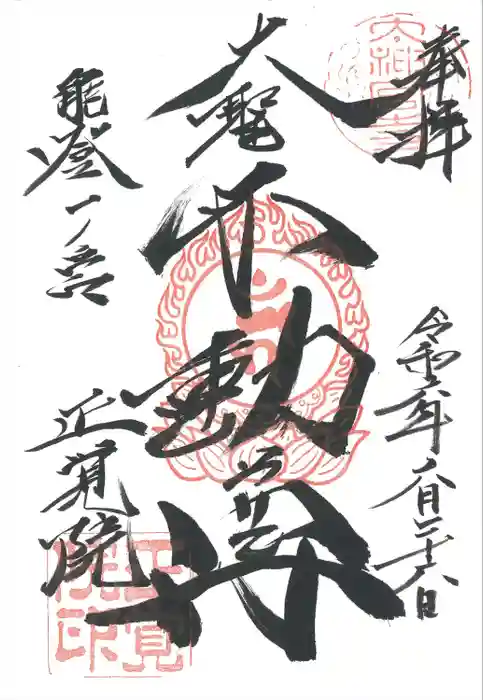 奉拝
令和六年八月二十六日
大聖不動尊
能登一ノ宮
正覚院
正覚
院印